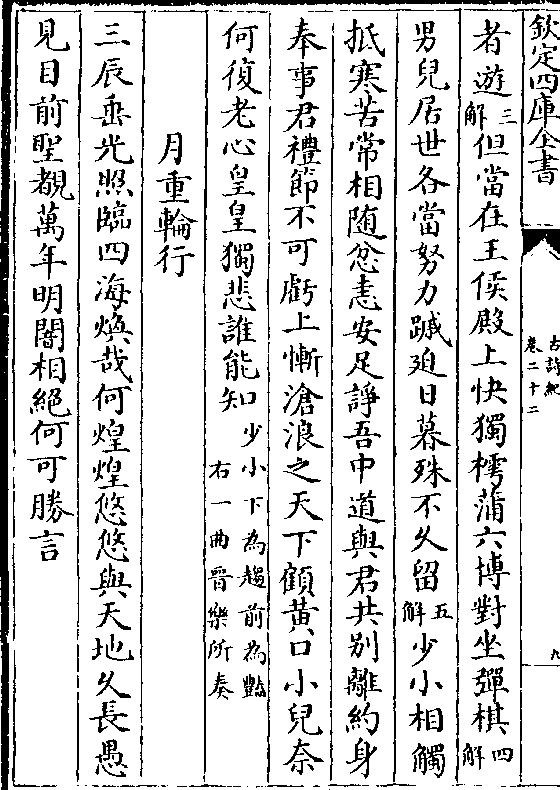 欽定四庫全書
古詩紀
卷二十二
九
者遊三解但當在王侯殿上快獨樗蒲六博對坐彈棋四解
男兒居世各當努力蹴迫日暮殊不久留五解少小相觸
抵寒苦常相隨忿恚安足諍吾中道與君共别離約身
奉事君禮節不可虧上慚滄浪之天下顧黃口小兒奈
何復老心皇皇獨悲誰能知少小下為趨前為豔右一曲晉樂所奏
月重輪行
三辰垂光照臨四海煥哉何煌煌悠悠與天地久長愚
見目前聖覩萬年明闇相絕何可勝言